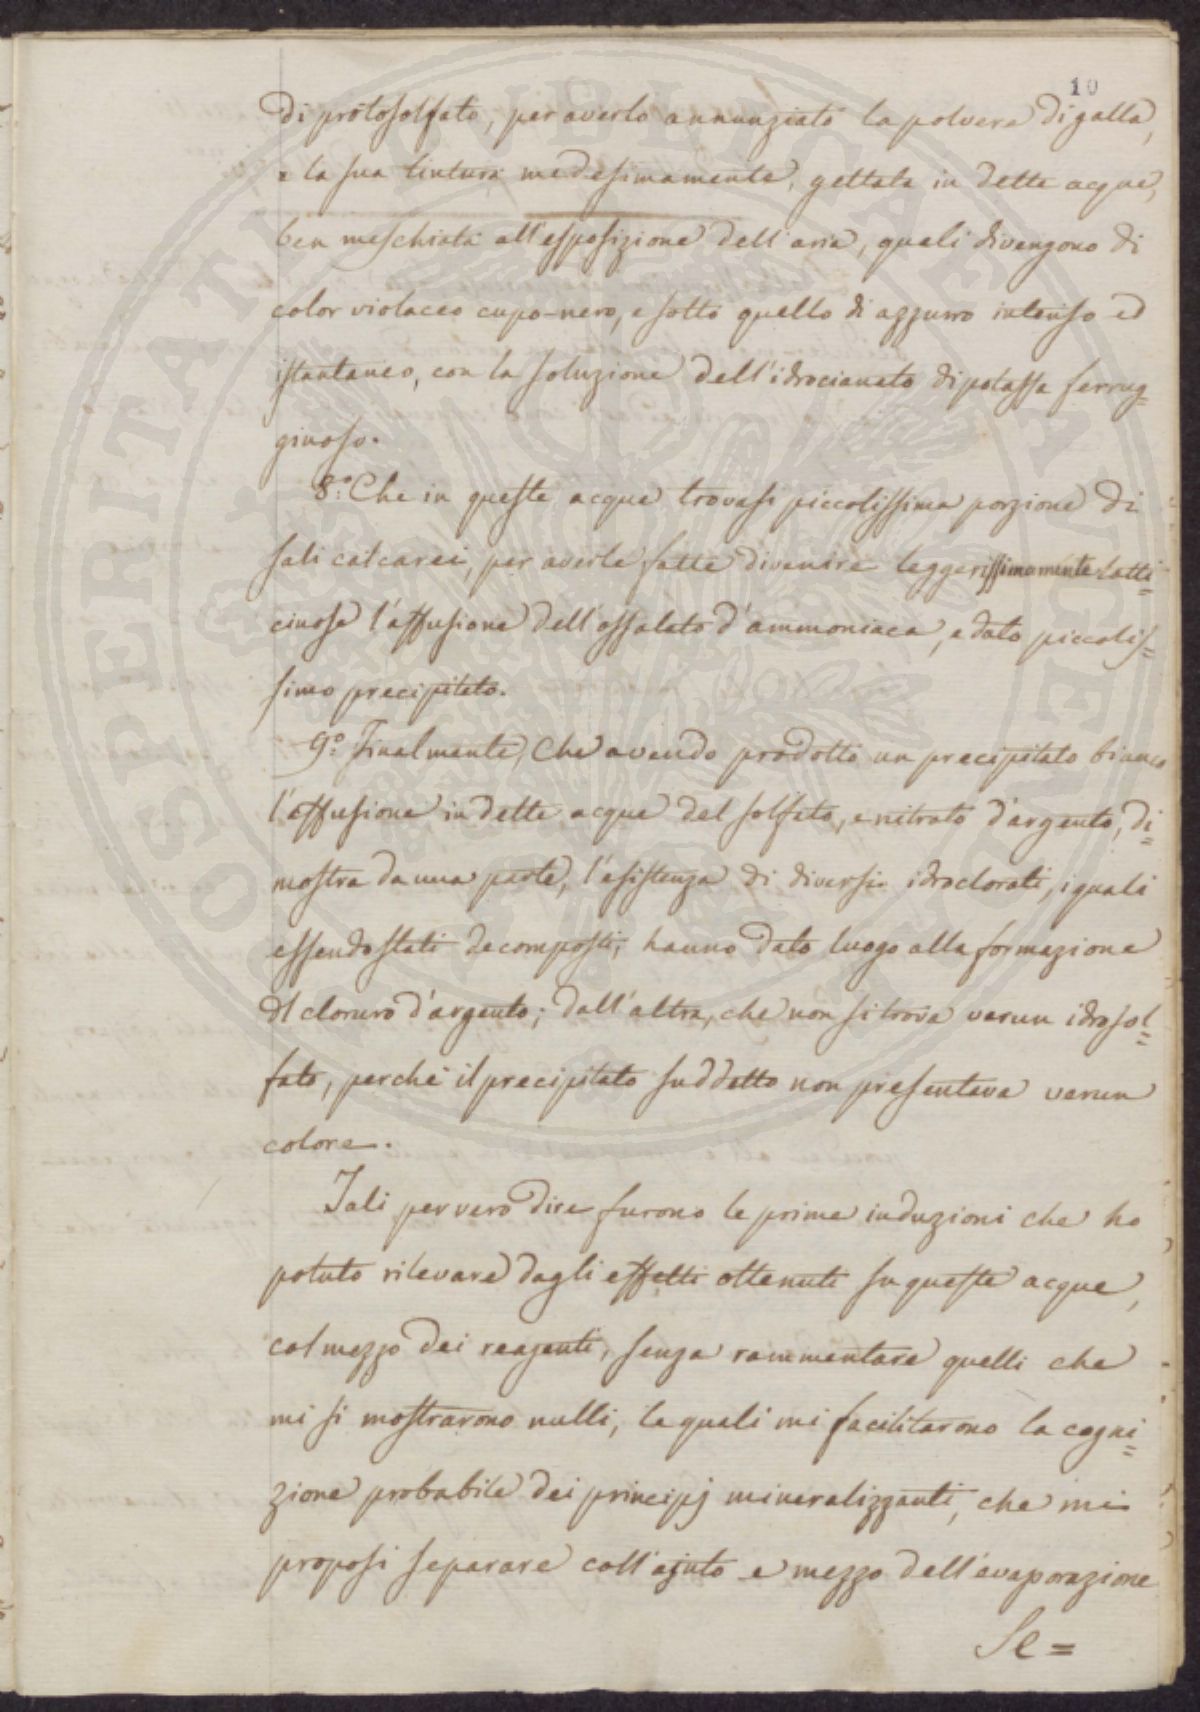 10
di protosolfato, per averlo annunziato la polvere di galla,
e la sua tintura medesimamente, gettata in dette acque,
ben meschiata all'esposizione dell'aria, quali divengono di
color violaceo cupo-nero, e sotto quello di azzurro intenso ed
istantaneo, con la soluzione dell'idrocianato di potassa ferrug=
ginoso.
8.° Che in queste acque trovasi piccolissima porzione di
sali calcarei, per averle fatte divenire leggerissimamente latti=
cinose l'affusione dell'ossalato d'ammoniaca, e dato piccolis=
simo precipitato.
9.° Finalmente, Che avendo prodotto un precipitato bianco
l'affusione in dette acque del solfato, e nitrato d'argento, di=
mostra da una parte, l'esistenza di diversi idroclorati, i quali
essendo stati decomposti, hanno dato luogo alla formazione
del cloruro d'argento; dall'altra, che non si trova verun idrosol=
fato, perchè il precipitato suddetto non presentava verun
colore.
Tali per vero dire furono le prime induzioni che ho
potuto rilevare dagli effetti ottenuti su queste acque,
col mezzo dei reagenti, senza rammentare quelli che
mi si mostrarono nulli, le quali mi facilitarono la cogni=
zione probabile dei principj mineralizzanti, che mi
proposi separare coll'ajuto e mezzo dell'evaporazione
Se=
OSPERITATI PUBLICAE AUGENDAE